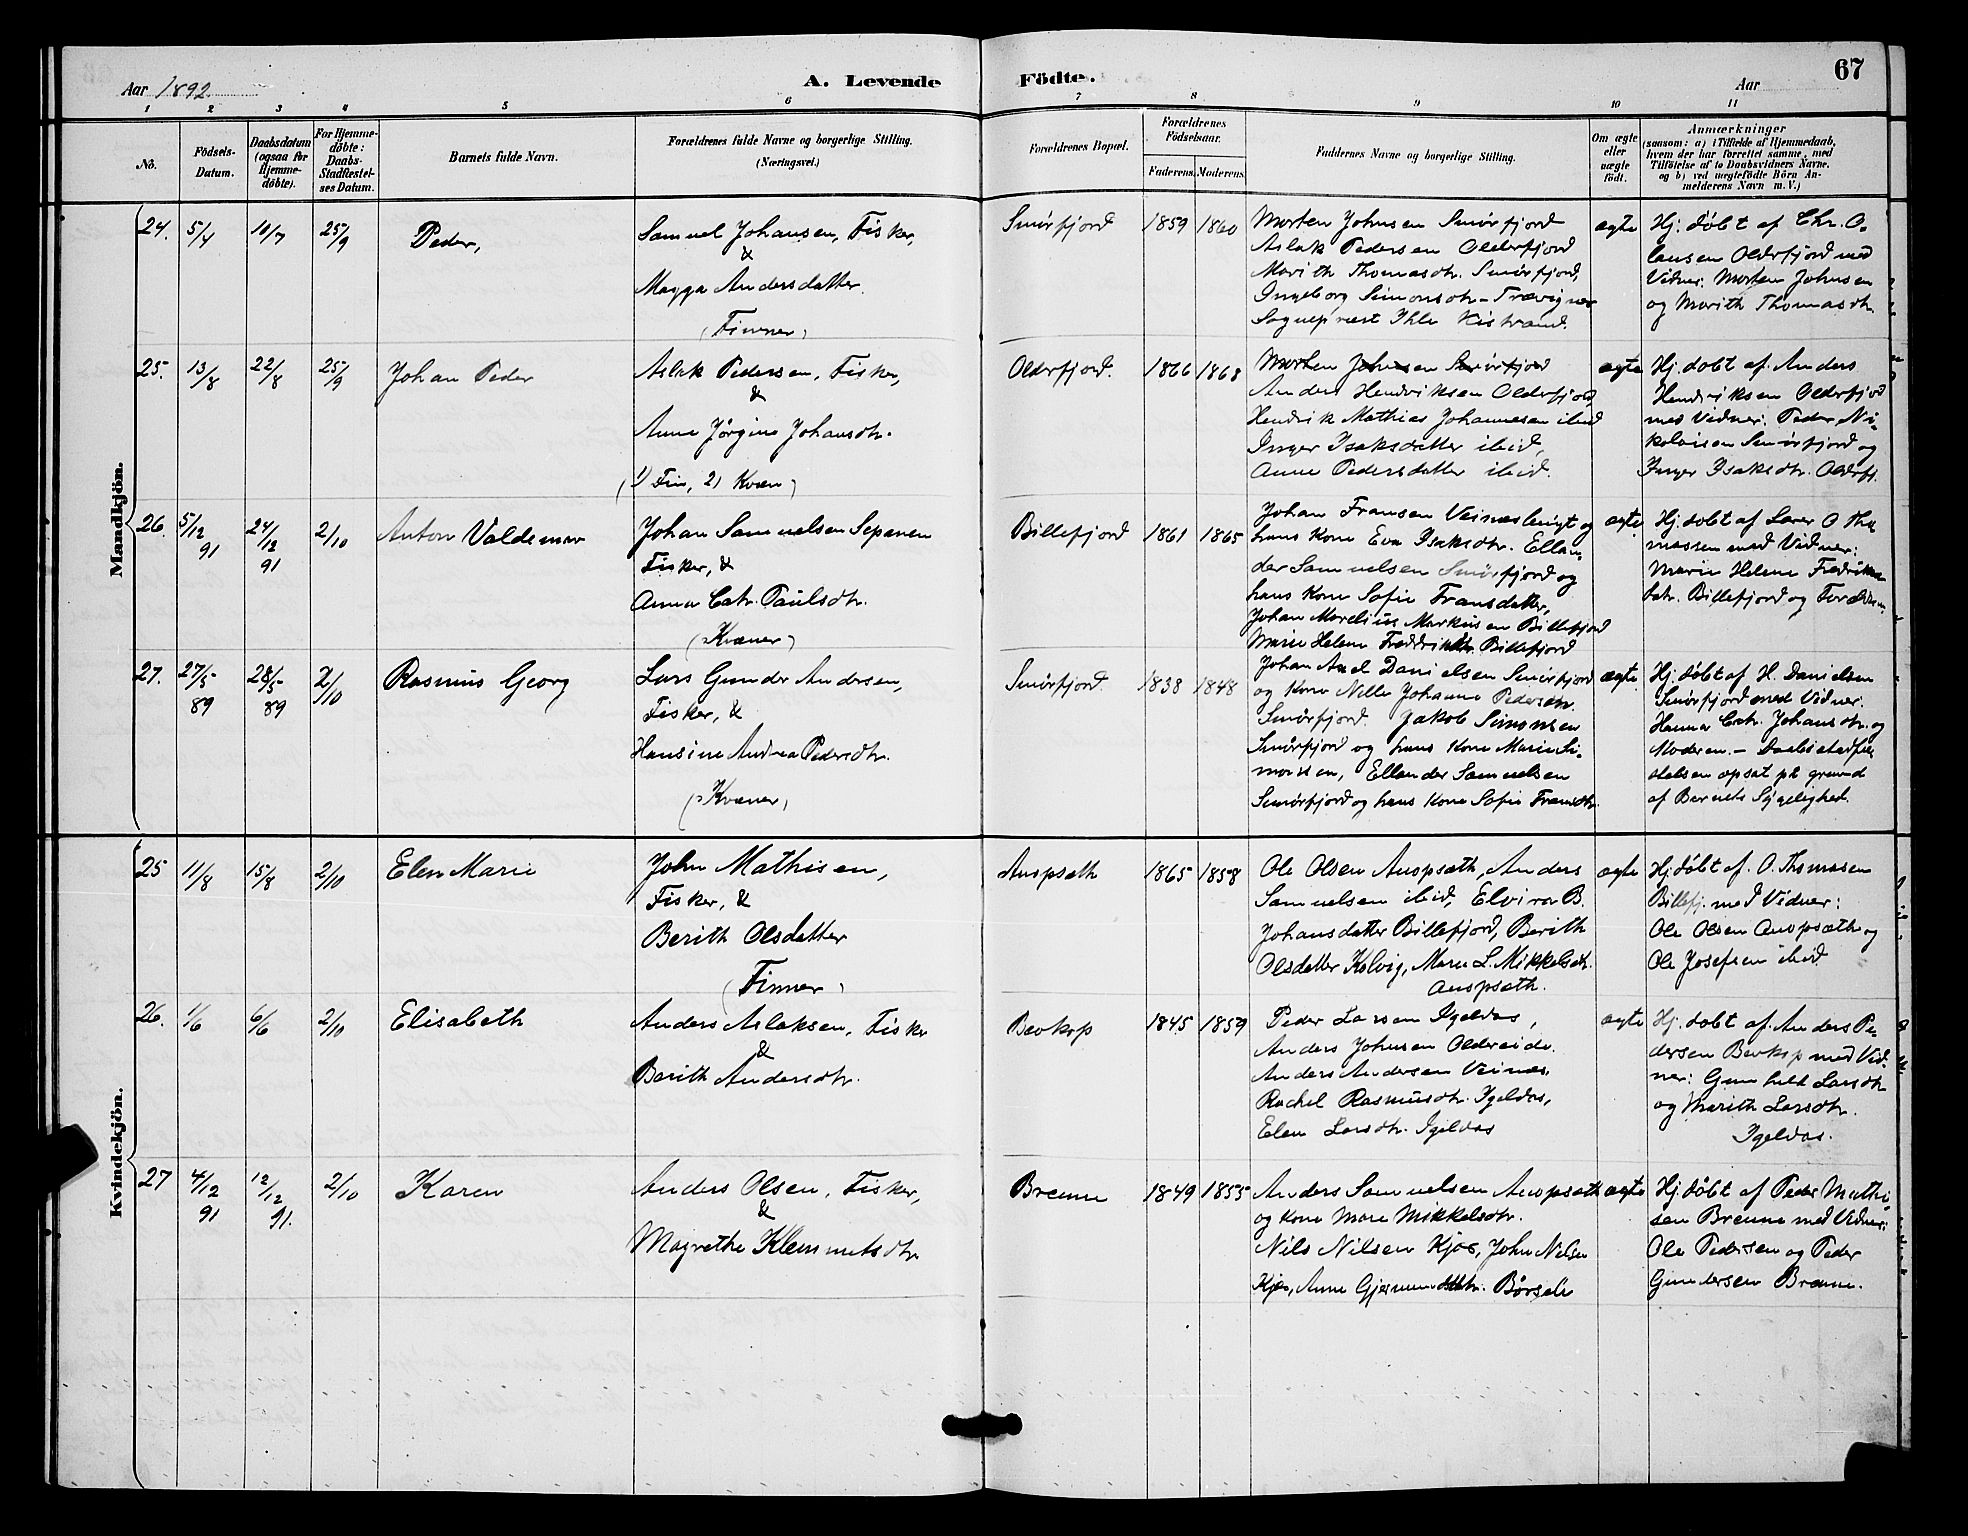 Aar 1892
A. Levende
Födte.
Aar
67
1 2 3 4 5 6 7 8 9 10 11
No.
Födsels-
Datum.
Daabsdatum
(ogsaa for
Hjemme-
döbte).
For Hjemme-
döbte:
Daabs-
Stadfæstel-
ses Datum.
Barnets fulde Navn.
Forældrenes fulde Navne og borgerlige Stilling.
(Næringsvei.)
Forældrenes Bopæl.
Forældrenes
Födselsaar.
Faderens. Moderens.
Faddernes Navne og borgerlige Stilling.
Om ægte
eller
uægte
födt.
Anmærkninger
(saasom: a) i Tilfælde af Hjemmedaab,
hvem der har forrettet samme, med
Tilföielse af to Daabsvidners Navne.
og b) ved uægtefödte Börn An-
melderens Navn m. V.)
Mandkjön.
24. 5/4 10/7 25/9 Peder,
Samuel Johansen, Fisker,
&
Magga Andersdatter.
(Finner)
Smørfjord 1859 1860
Morten Johnsen Smørfjord
Aslak Pedersen Olderfjord
Marith Thomasdtr. Smørfjord,
Ingeborg Simonsdtr. Trævignes
Sogneprest Ihle Kistrand.
ægte
Hj. døbt af Chr. O-
lausen Olderfjord med
Vidner: Morten Johnsen
og Marith Thomasdtr.
25. 13/8 22/8 25/9 Johan Peder
Aslak Pedersen, Fisker,
&
Anne Jørgine Johansdtr.
(1) Fin, 2) Kvæn)
Olderfjord. 1866 1868
Morten Johnsen Smørfjord
Anders Hendriksen Olderfjord,
Hendrik Mathias Johannesen ibid
Inger Isaksdatter ibid,
Anne Pedersdatter ibid.
ægte
Hj. døbt af Anders
Hendriksen Olderfjord
med Vidner: Peder Ni-
kolaisen Smørfjord og
Inger Isaksdtr. Olderfj.
26. 5/12 91 24/12 91 2/10 Anton Valdemar
Johan Samuelsen Sepanen
Fisker, &
Anna Catr. Paulsdtr.
(Kvæner)
Billefjord 1861 1865
Johan Fransen Veinesbugt og
hans Kone Eva Isaksdtr. Ellan-
der Samuelsen Smørfjord og
hans Kone Sofie Fransdatter,
Johan Marelius Markusen Billefjord
Marie Helene Fredriksdtr. Billefjord
ægte
Hj. døbt af Lærer O. Tho
massen med Vidner:
Marie Helene Fredriksen
dtr. Billefjord og
27. 27/5 89 28/5 89 2/10 Rasmus Georg
Lars Gunder Andersen,
Fisker, &
Hansine Andrea Pedersdtr.
(Kvæner)
Smørfjord. 1838 1848
Johan Axel Danielsen Smørfjord
og Kone Nille Johanne Pedersdtr.
Smørfjord. Jakob Simonsen
Smørfjord og hans Kone Marie Si-
monsen, Ellander Samuelsen
Smørfjord og hans Kone Sofie Fransdtr.
ægte.
Hj. døbt af H. Danielsen
Smørfjord med Vidner.
Hanna Catr. Johansdtr. og
Moderen. – Daabsstadfæ
stelsen opsat på grund
af Barnets Sygelighed.
Kvindekjön.
25 11/8 15/8 2/10 Elen Marie
John Mathisen,
Fisker, &
Berith Olsdatter
(Finner)
Auspsæth 1865 1858
Ole Olsen Auspsæth, Anders
Samuelsen ibid, Elvira B.
Johansdatter Billefjord, Berith
Olsdatter Kolvig, Mare L. Mikkelsdtr.
Auspsæth.
ægte
Hj. døbt af O. Thomasen
Billefj. med Vidner:
Ole Olsen Auspsæth og
Ole Josefsen ibid
26. 1/6 6/6 2/10 Elisabeth
Anders Aslaksen, Fisker
&
Berith Andersdtr.
Bevkop 1845 1859
Peder Larsen Igeldas,
Anders Johnsen Oldereide.
Anders Andersen Veines,
Rachel Rasmusdtr. Igeldas,
Elen Larsdtr. Igeldas
ægte
Hj. døbt af Anders Pe-
dersen Bevkop med Vid-
ner: Gunhild Larsdtr
og Marith Larsdtr.
Igeldas.
27 4/12 91 12/12 91. 2/10 Karen
Anders Olsen, Fisker,
&
Magrethe Klemmetsdtr.
Brenne 1849 1855
Anders Samuelsen Auspsæth
og Kone Mare Mikkelsdtr.
Nils Nilsen Kjæs, John Nilsen
Kjæs, Anne Gjermundsdtr. Børselv
ægte
Hj. døbt af Peder Mathi
sen Brenne med Vidner:
Ole Pedersen og Peder
Gundersen Brenne.